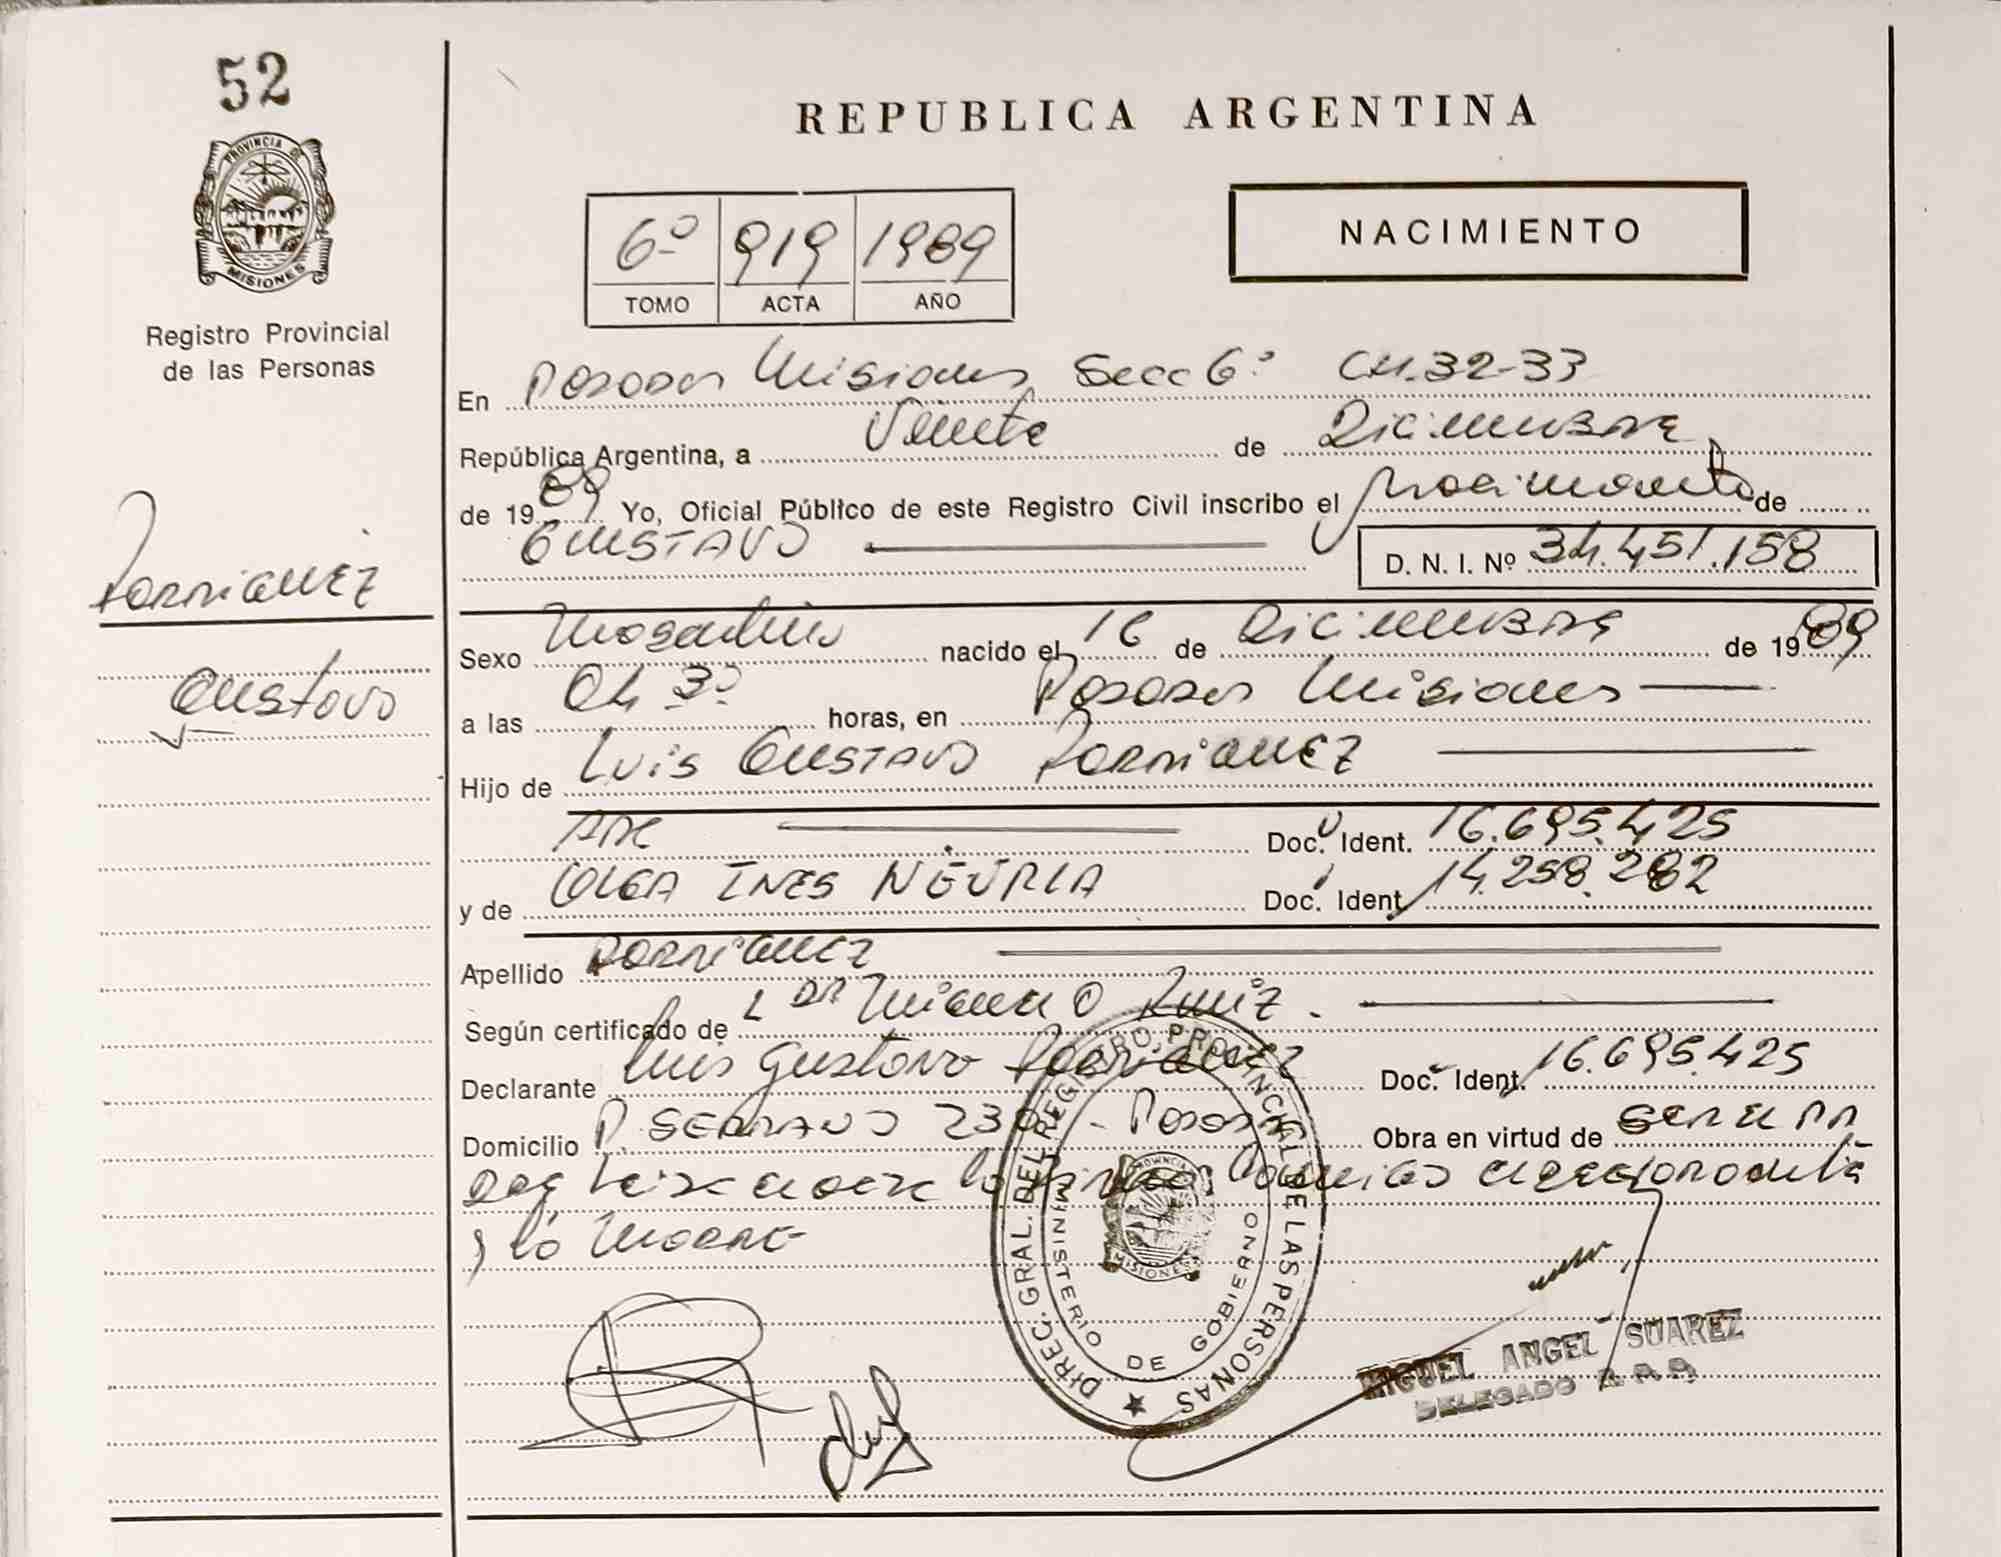 52
PROVINCIA DE
MISIONES
Registro Provincial
de las Personas
REPUBLICA ARGENTINA
6º 919 1989
TOMO ACTA AÑO
NACIMIENTO
En Posadas Misiones Secc 6º CH.32-33
República Argentina, a Veinte de Diciembre
de 1989 Yo, Oficial Público de este Registro Civil inscribo el Nacimiento de
GUSTAVO
D. N. I. Nº 34.451.158
Rodriguez
Gustavo
Sexo Masculino nacido el 16 de Diciembre de 1989
a las 04 30 horas, en Posadas Misiones
Hijo de Luis Gustavo Rodriguez
ARG Doc. Ident. 16.695.425
y de OLGA INES Doc. Ident. 14.258.282
Apellido Rodriguez
Según certificado de L DR Miguel O Ruiz.
Declarante Luis Gustavo Rodriguez Doc. Ident. 16.695.425
Domicilio P. SERRANO Posadas Obra en virtud de ser el PA
DRE
y la Madre
DIREC. GRAL. DEL REGISTRO PROVINCIAL DE LAS PERSONAS
MINISTERIO DE GOBIERNO
PROVINCIA
MISIONES
MIGUEL ANGEL SUAREZ
DELEGADO